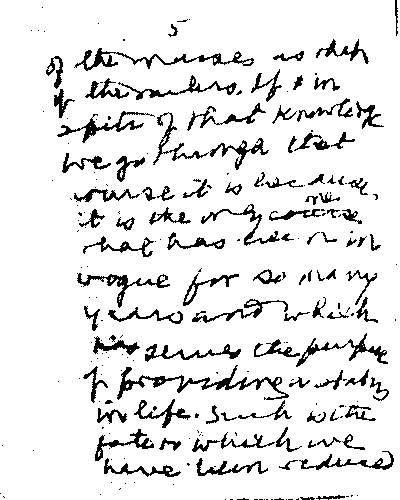 5
of the masses as that
of the rulers. If in
spite of that knowledge
we go through that
course it is because
it is the only one
that has been in
vogue for so many
years and which
serves the purpose
of providing a status
in life. Such is the
fate to which we
have been reduced